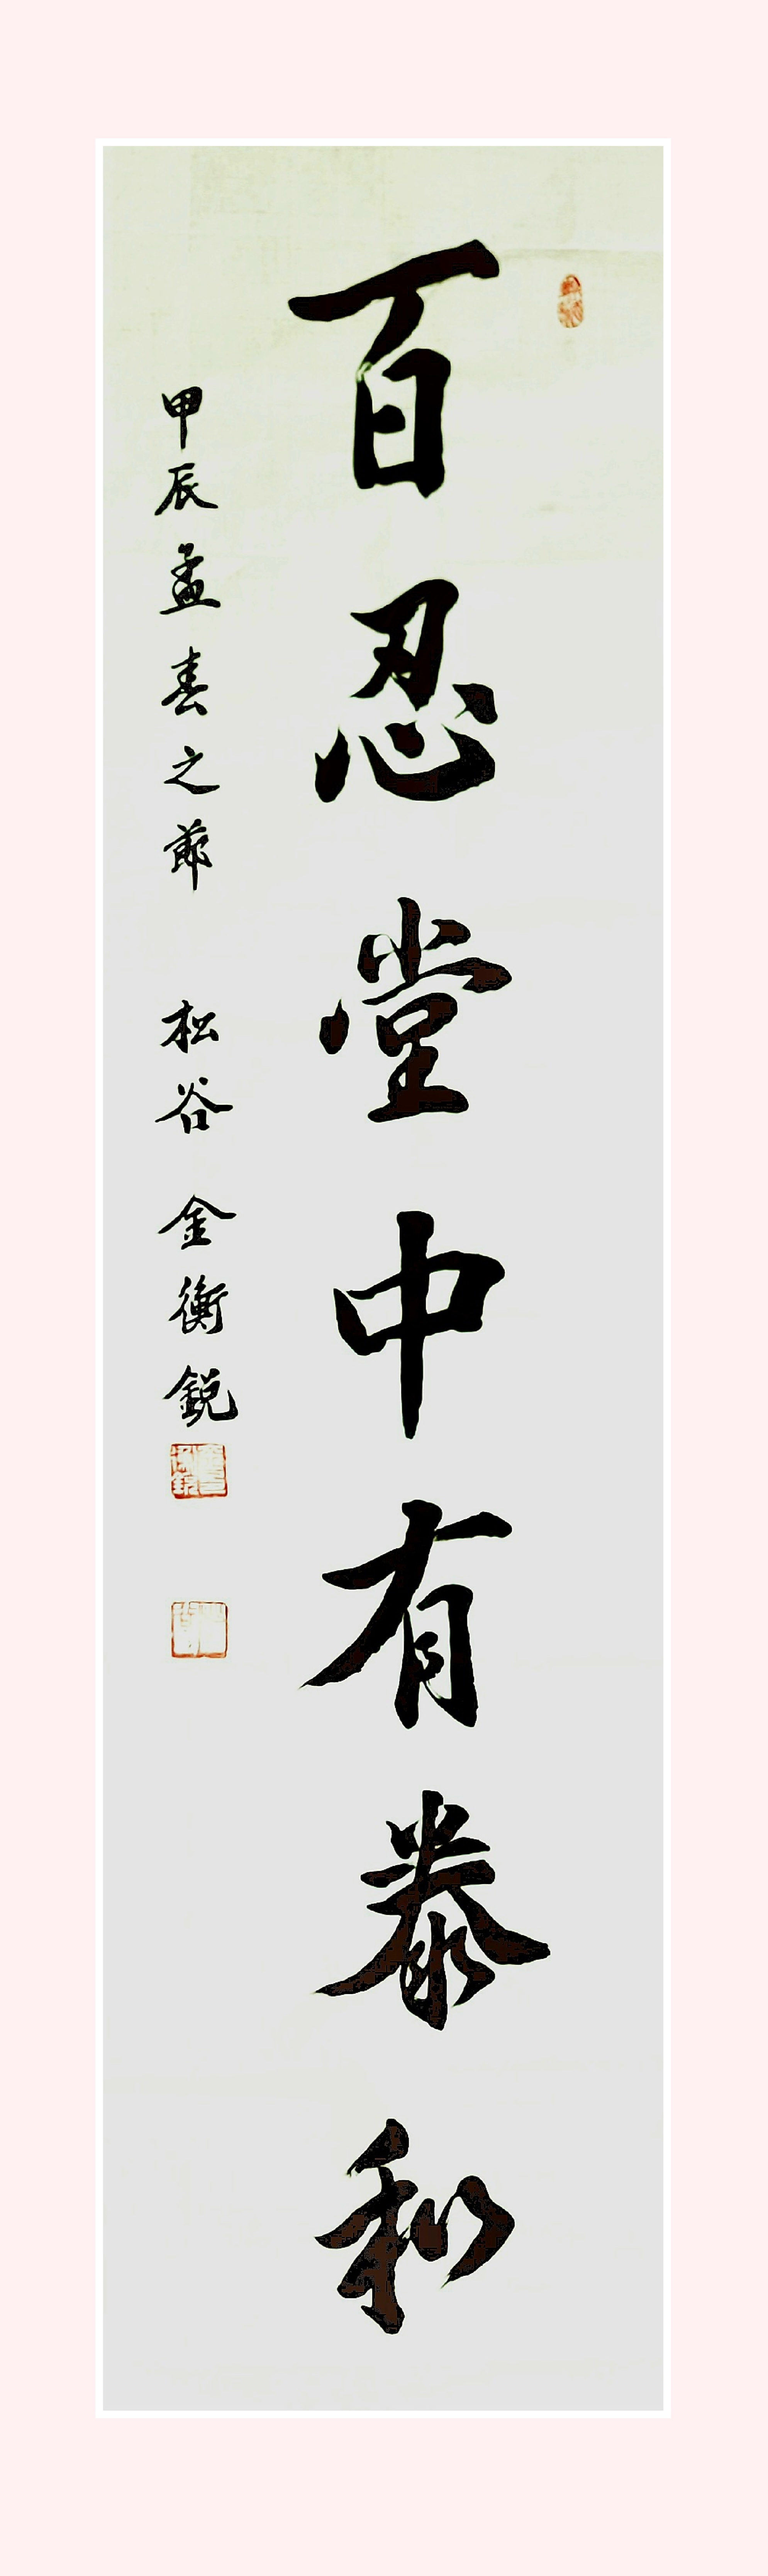 百忍堂中有泰和
甲辰孟春之節 松谷 金衡銳